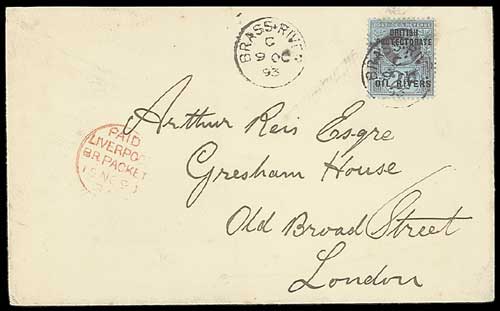 BRASS·RIVER
C
9 OC
93
BRITISH
PROTECTORATE
OIL RIVERS
PAID
LIVERPOOL
BR. PACKET
Arthur Reis Esqre
Gresham House
Old Broad Street
London